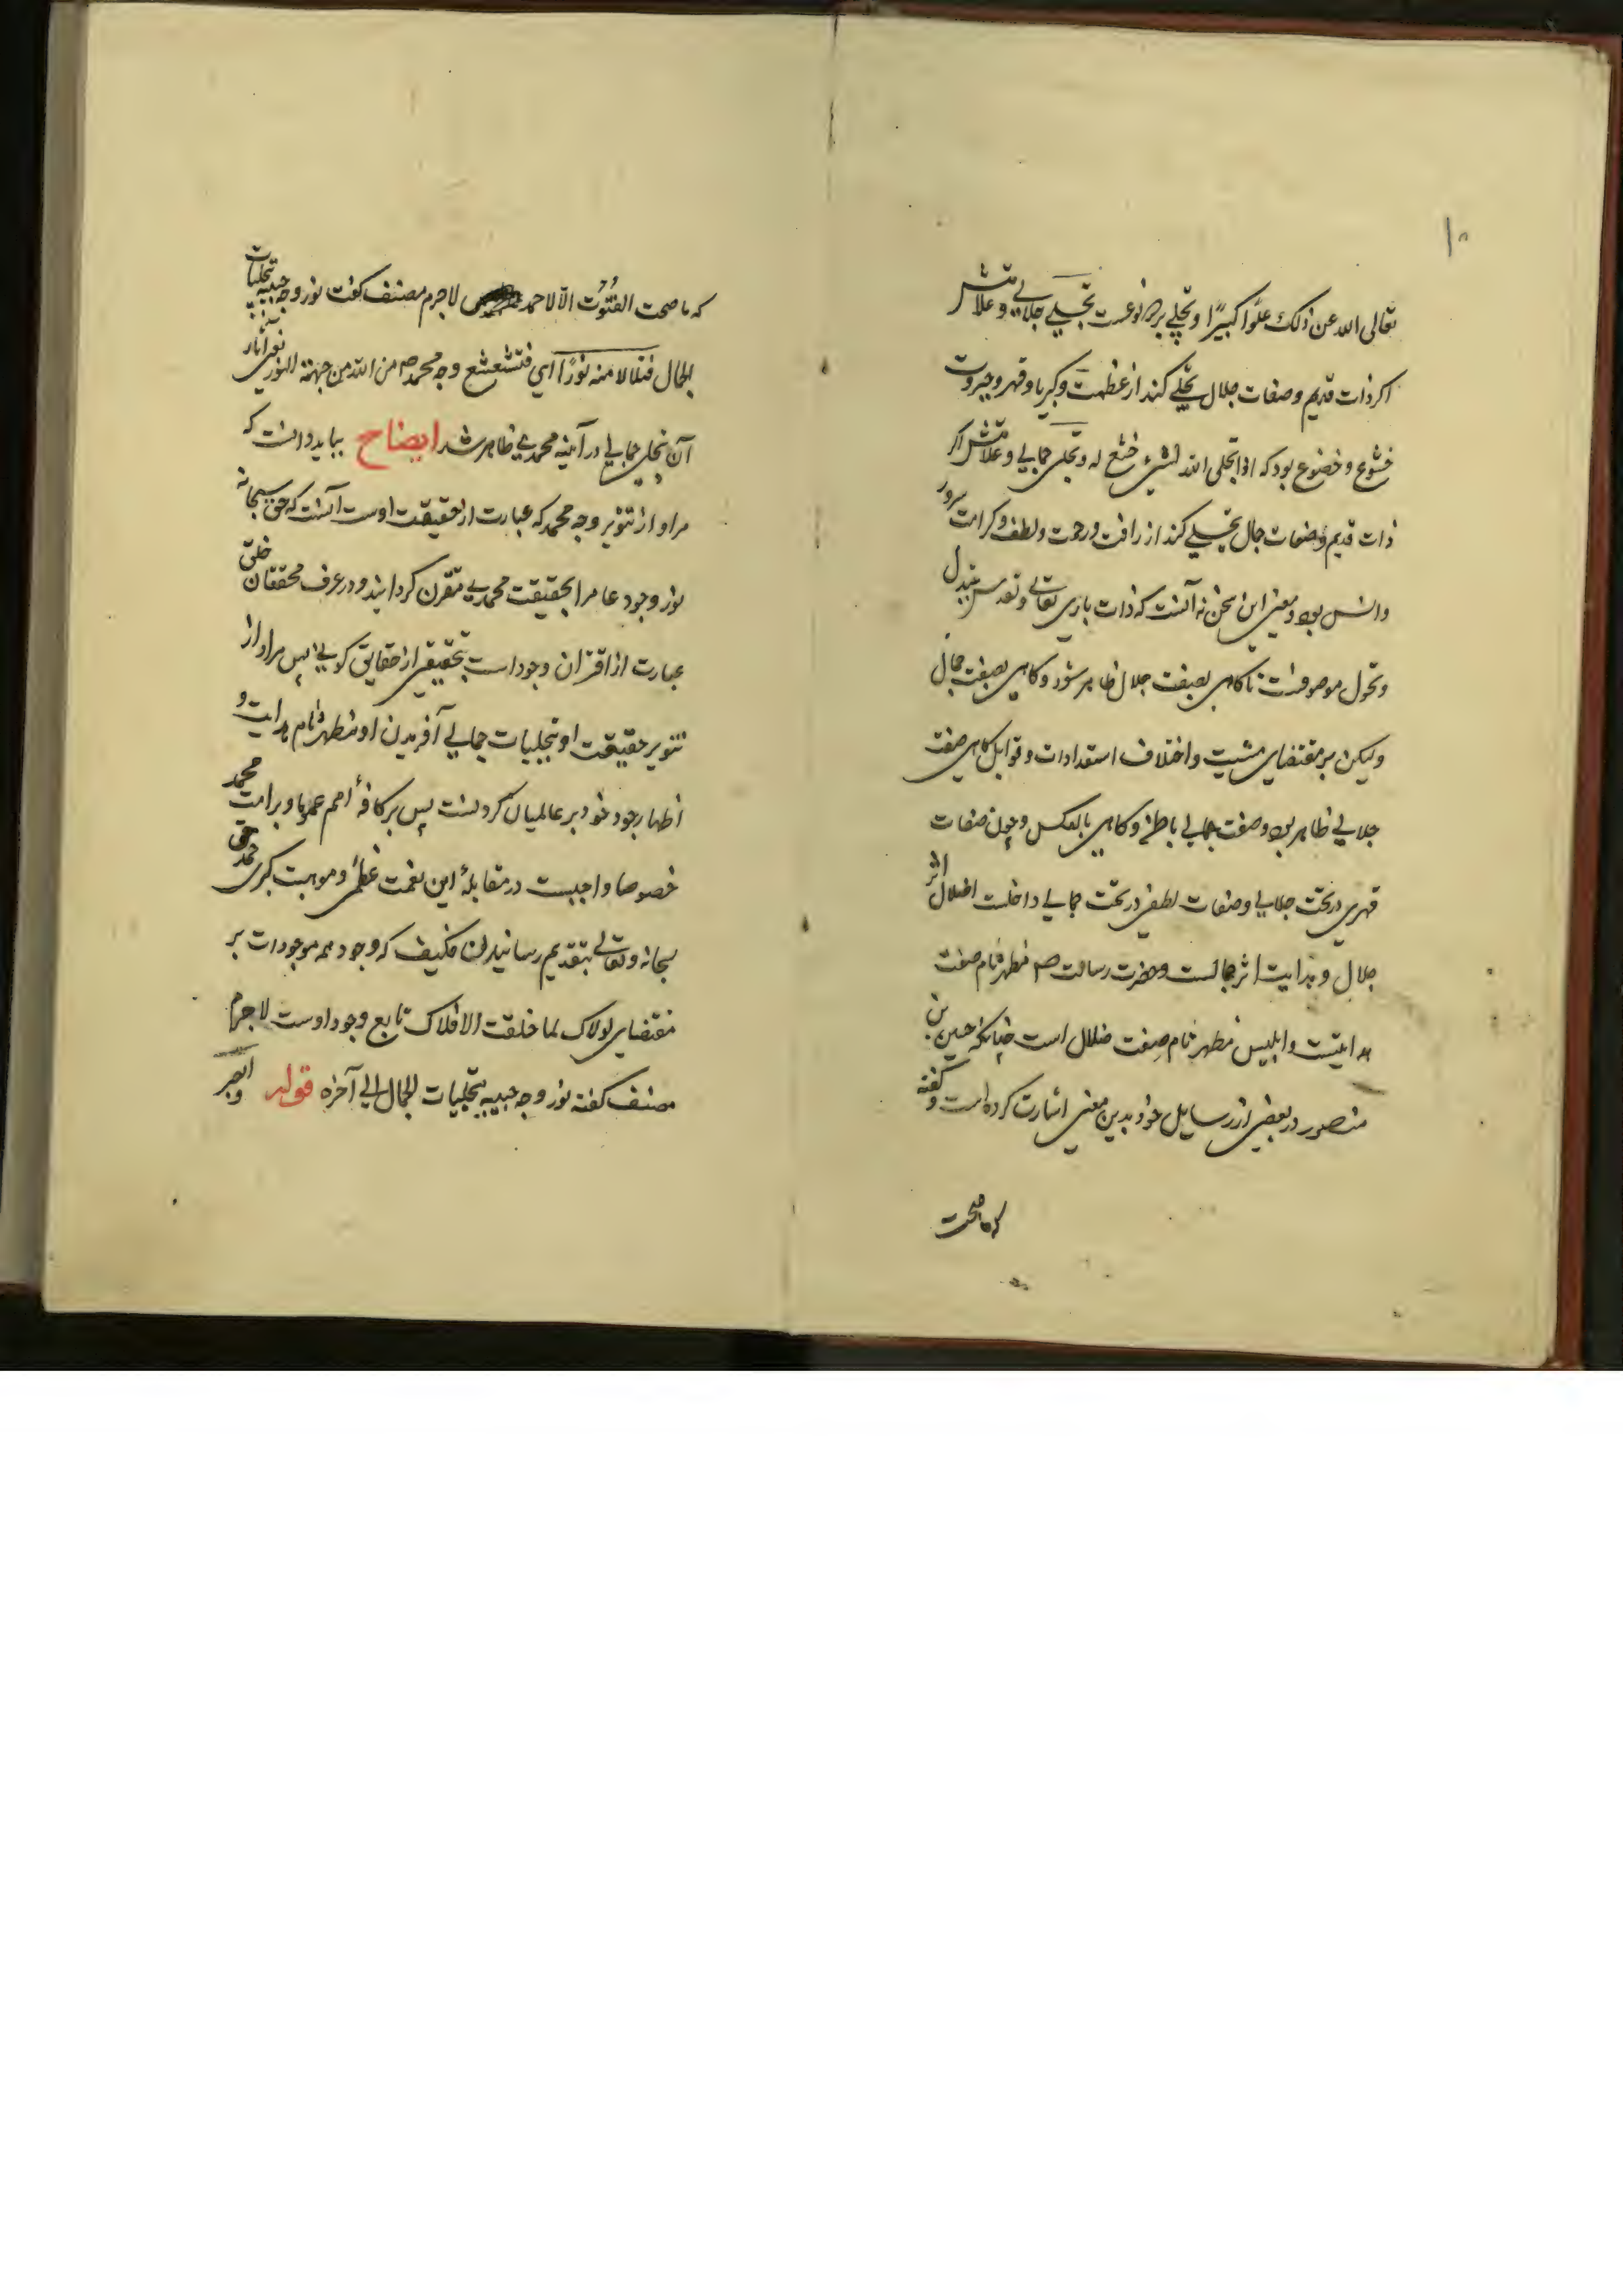 ۱۰
تعالی الله عن ذلک علوا کبیرًا و تجلی بر دو نوعست تجلیے جلالے و علامتش
اکر ذات قدیم و صفات جلال تجلے کند از عظمت و کبریا و قهر و جبروت
خشوع و خضوع بود که اذا تجلی الله لشیء خشع له و تجلی جمالے و علامتش اکر
ذات قدیم بصفات جمال تجلے کند از رافت و رحمت و لطف و کرامت سرور
و انس بود و معنی این سخن نه آنست که ذات باری تعالے و تقدس بتبدل
و تحول موصوفست تا کاهی بصفت جلال ظاهر شود و کاهی بصفت جمال
ولیکن بر مقتضای مشیت و اختلاف استعدادات و قوابل کاهی صفت
جلالے ظاهر بود و صفت جمالے باطن و کاهی بالعکس و چون صفات
قهری در تحت جلالے و صفات لطفی در تحت جمالے داخلست اضلال اثر
جلال و هدایت اثر جمالست و حضرت رسالت صم مظهر تام صفت
هدایتست و ابلیس مظهر تام صفت ضلال است چنانکه حسین بن
منصور در بعضی از رسایل خود بدین معنی اشارت کرده است و گفته
که ما صحت
که ما صحت الفتوت الّا لاحمد لاجرم مصنف کفت نور وجه حبیبه بتجلیات
الجمال فتلالا منه نورًا ای فتشعشع وجه محمد صم من الله من جهة النور یعنی آثار
آن تجلی جمالے در آینه محمدی ظاهر شد ایضاح بباید دانست که
مراد از تنویر وجه محمد که عبارت از حقیقت اوست آنست که حق سبحانه
نور وجود عام را بحقیقت محمدی مقرن کردانید و در عرف محققان خلق
عبارت از اقتران وجود است بحقیقتی از حقایق کونے پس مراد از
تنویر حقیقت او بتجلیات جمالے آفریدن او مظهر تام هدایت و
اظهار جود خود بر عالمیان کردنست پس بر کافهٔ امم عموما و بر امت محمد
خصوصا واجبست در مقابلهٔ این نعمت عظمی و موهبت کبری حمد حق
سبحانه و تعالے بتقدیم رسانیدن فکیف که وجود همه موجودات بر
مقتضای لولاک لما خلقت الافلاک تابع وجود اوست لاجرم
مصنف کفته نور وجه حبیبه بتجلیات الجمال الی آخره قوله و ابصر